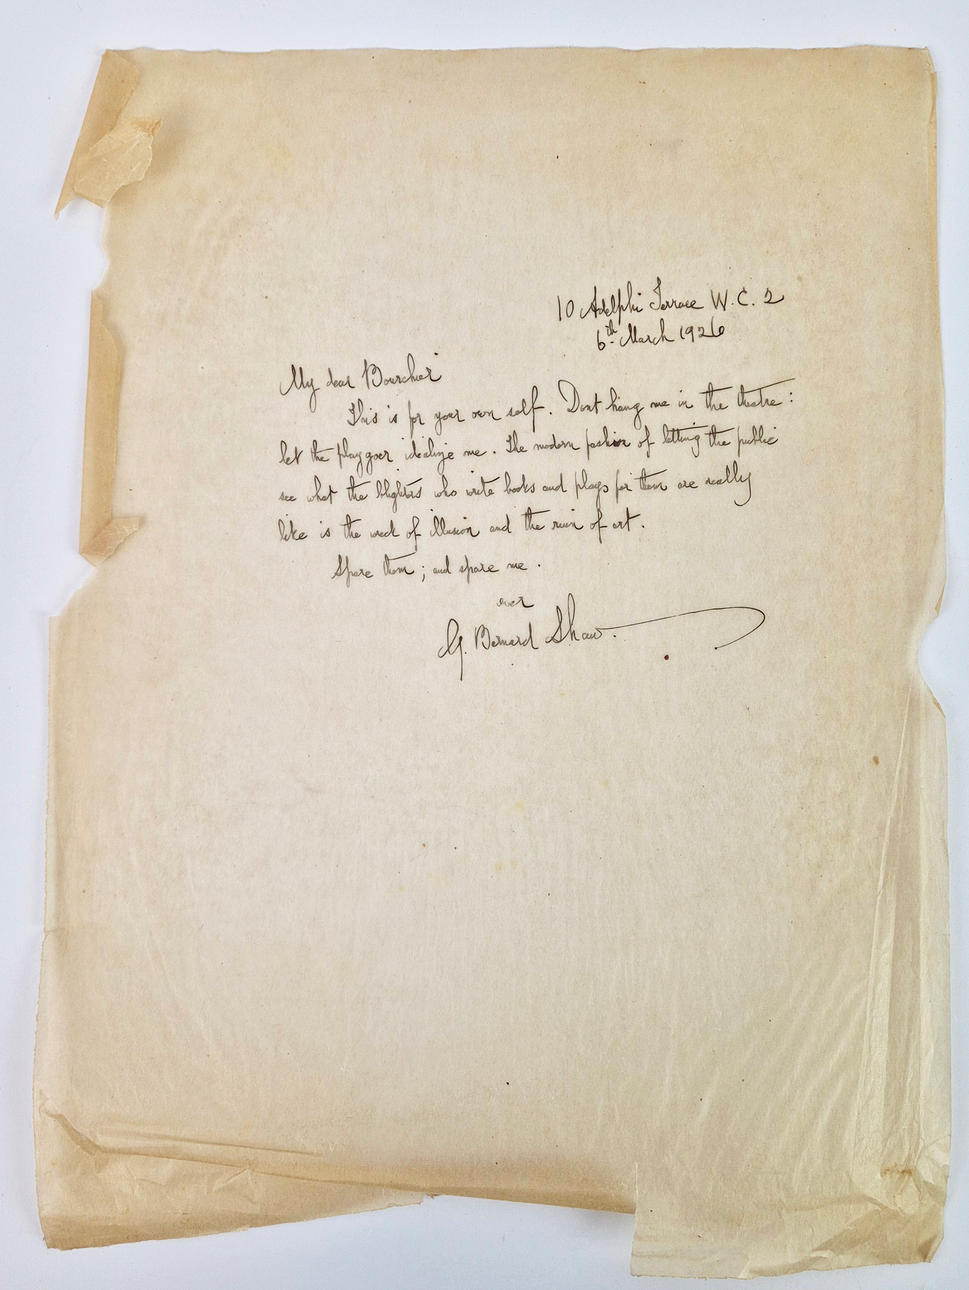 10 Adelphi Terrace W.C. 2
6th March 1926
My dear Bourchier
This is for your own self. Dont hang me in the theatre:
let the playgoer idealize me. The modern fashion of letting the public
see what the blighters who write books and plays for them are really
like is the wreck of illusion and the ruin of art.
Spare them; and spare me.
ever
G. Bernard Shaw.